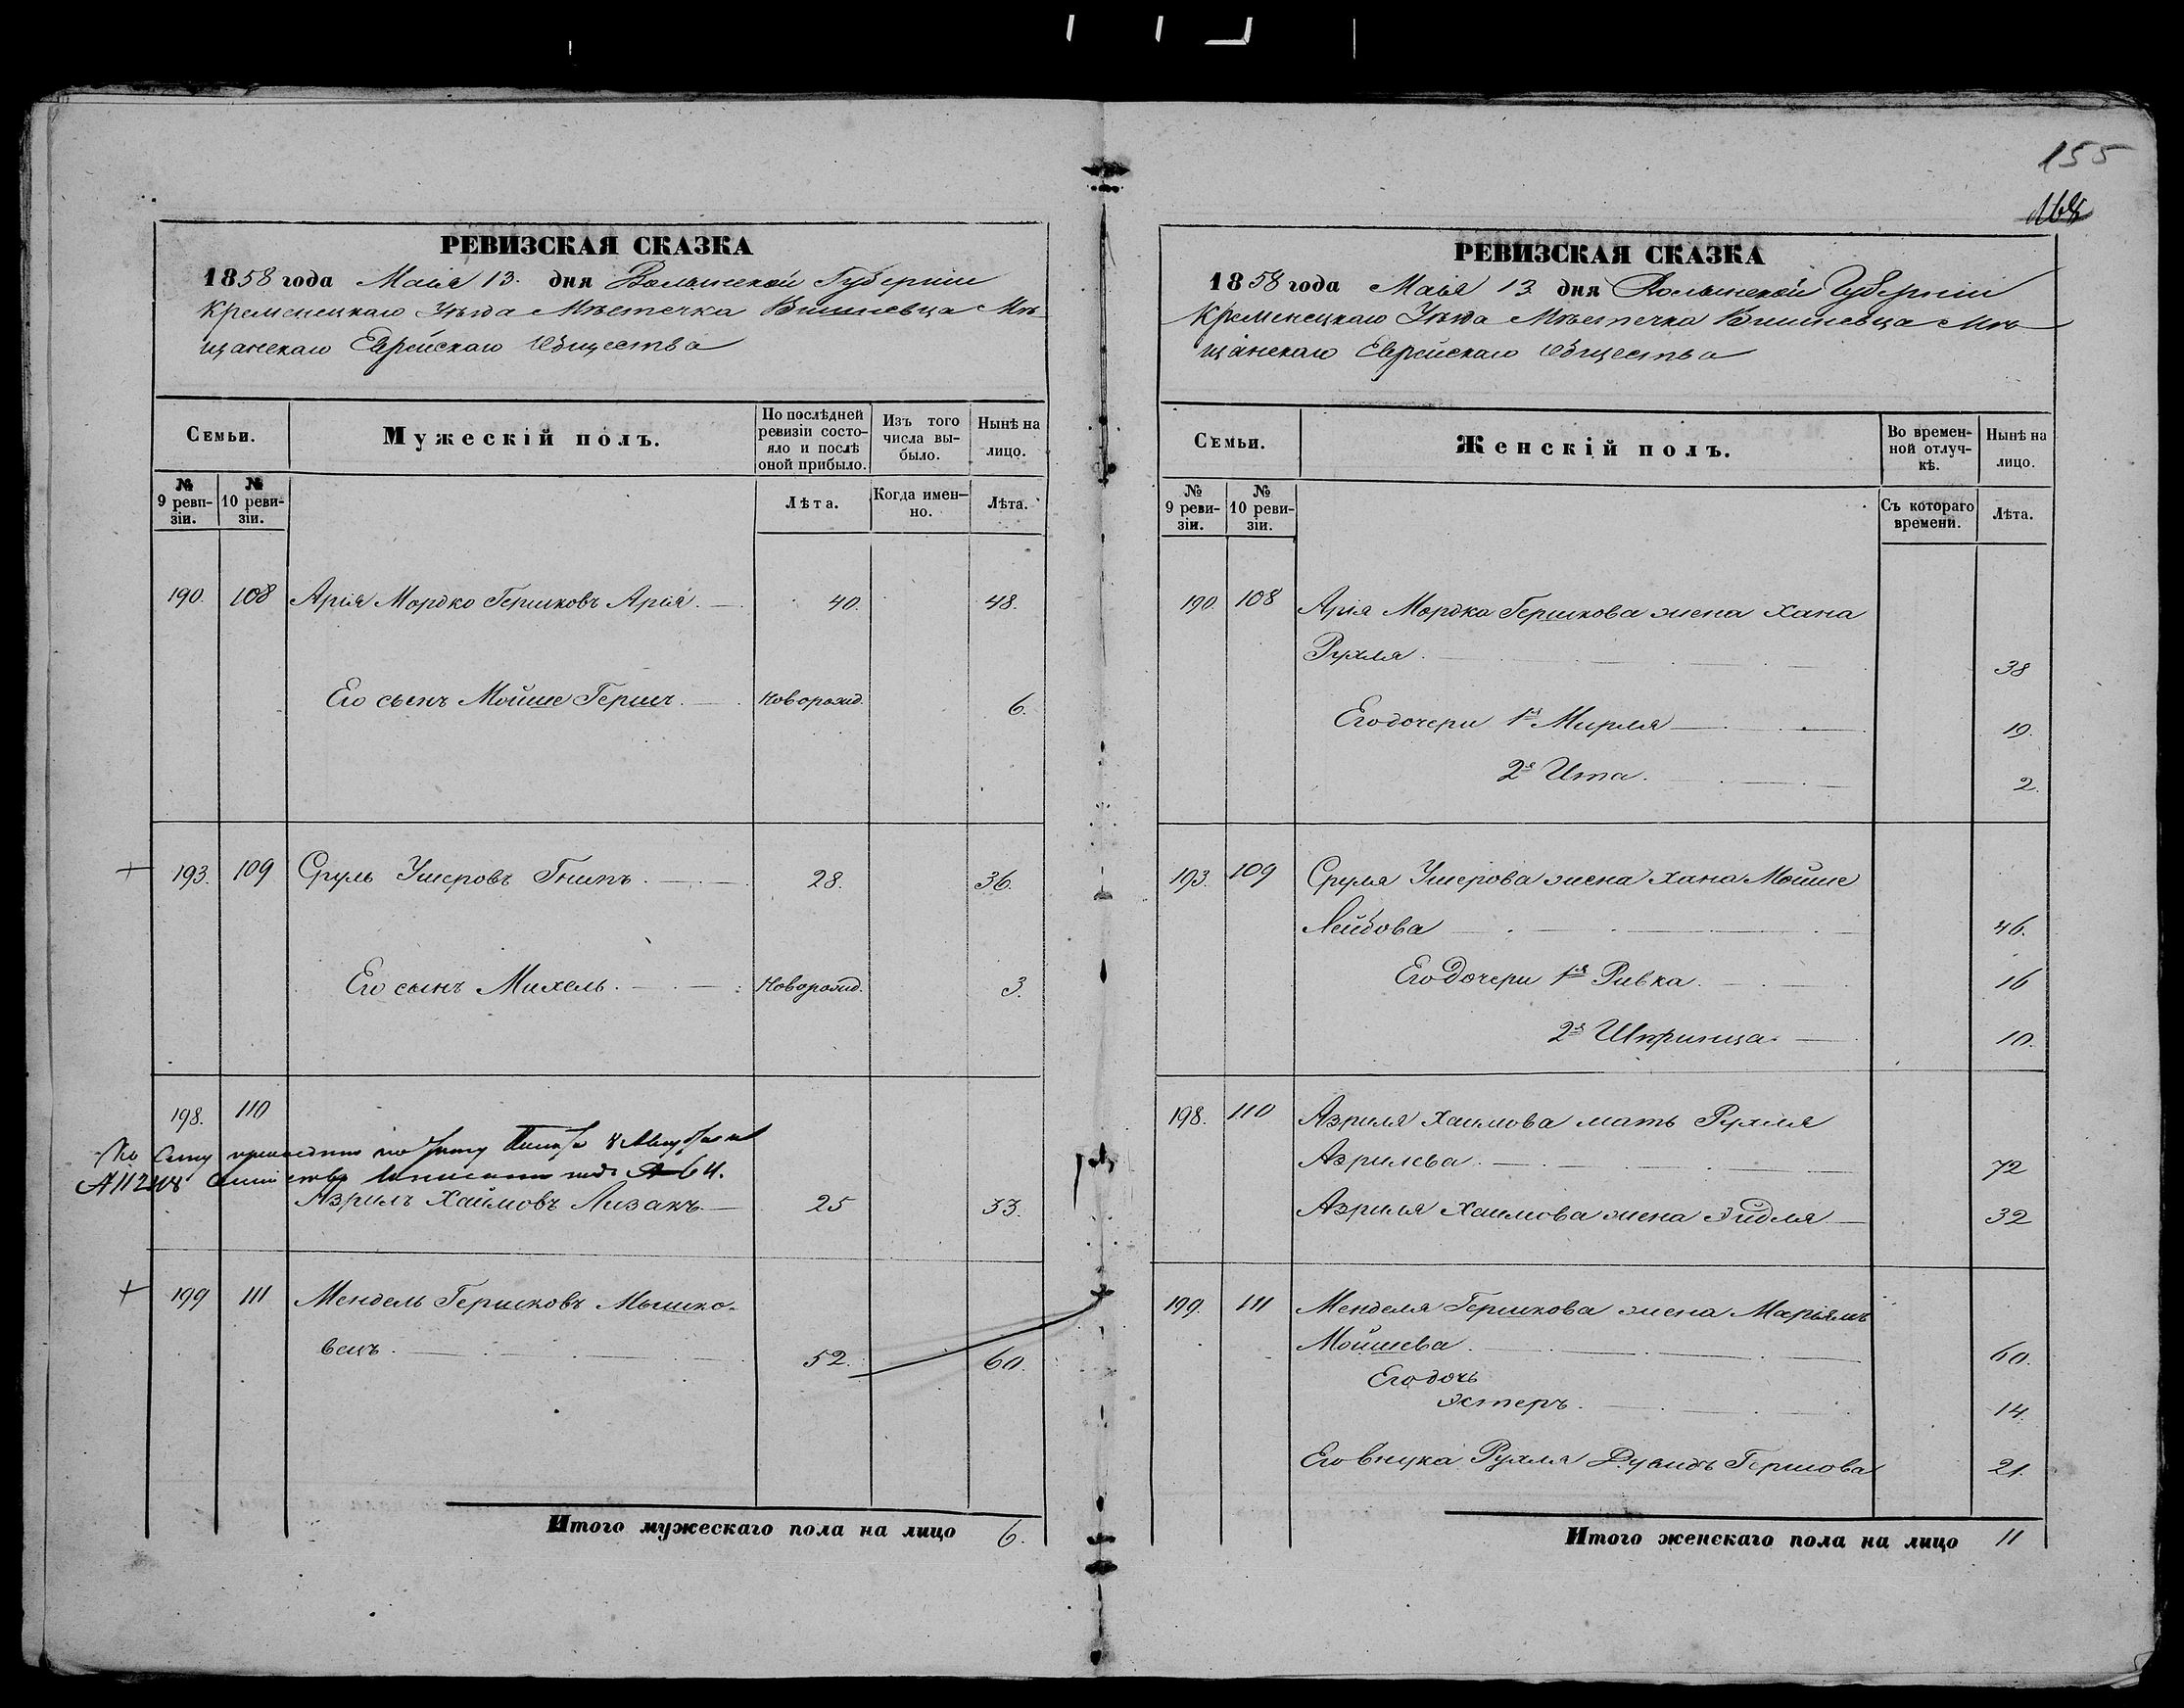 155
168
РЕВИЗСКАЯ СКАЗКА
1858 года Маія 13. дня Волынской Губерніи
Кременецкаго Уѣзда Мѣстечка Вишневца Мѣ
щанскаго Еврейскаго Общества
Семьи.
Мужескій полъ.
По послѣдней ревизіи состояло и послѣ оной прибыло.
Изъ того числа выбыло.
Нынѣ на лицо.
№ 9 ревизіи.
№ 10 ревизіи.
Лѣта.
Когда именно.
Лѣта.
190. 108 Арія Мордко Гершковъ Арія. 40. 48.
Его сынъ Мойше Гершъ. новорожд. 6.
193. 109 Сруль Ушеровъ Гнипъ. 28. 36.
Его сынъ Михель. новорожд. 3.
198. 110
По сему
Азриль Хаимовъ Лизакъ 25 33.
199 111 Мендель Гершковъ Мышко-
вецъ. 52. 60.
Итого мужескаго пола на лицо 6.
РЕВИЗСКАЯ СКАЗКА
1858 года Маія 13 дня Волынской Губерніи
Кременецкаго Уѣзда Мѣстечка Вишневца Мѣ
щанскаго Еврейскаго Общества
Семьи.
Женскій полъ.
Во временной отлучкѣ.
Нынѣ на лицо.
№ 9 ревизіи.
№ 10 ревизіи.
Съ котораго времени.
Лѣта.
190. 108 Арія Мордка Гершкова жена Хана
Рухля. 38
Его дочери 1я Мирля 19.
2я Ита. 2.
193. 109 Сруля Ушерова жена Хана Мойше
Лейбова 46.
Его дочери 1я Ривка. 16
2я Шпринца. 10.
198. 110 Азриля Хаимова мать Рухля
Азрилева. 72
Азриля Хаимова жена Эидля 32
199. 111 Менделя Гершкова жена Маріямъ
Мойшева. 60.
Его дочь
Эстеръ. 14.
Его внука Рухля Дувидъ Гершова 21.
Итого женскаго пола на лицо 11